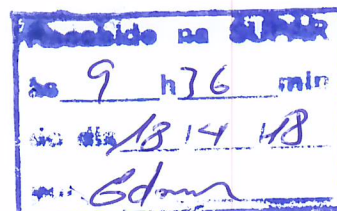 Recebido na SUPAR
às 9 h 36 min
no dia 13 / 4 / 18